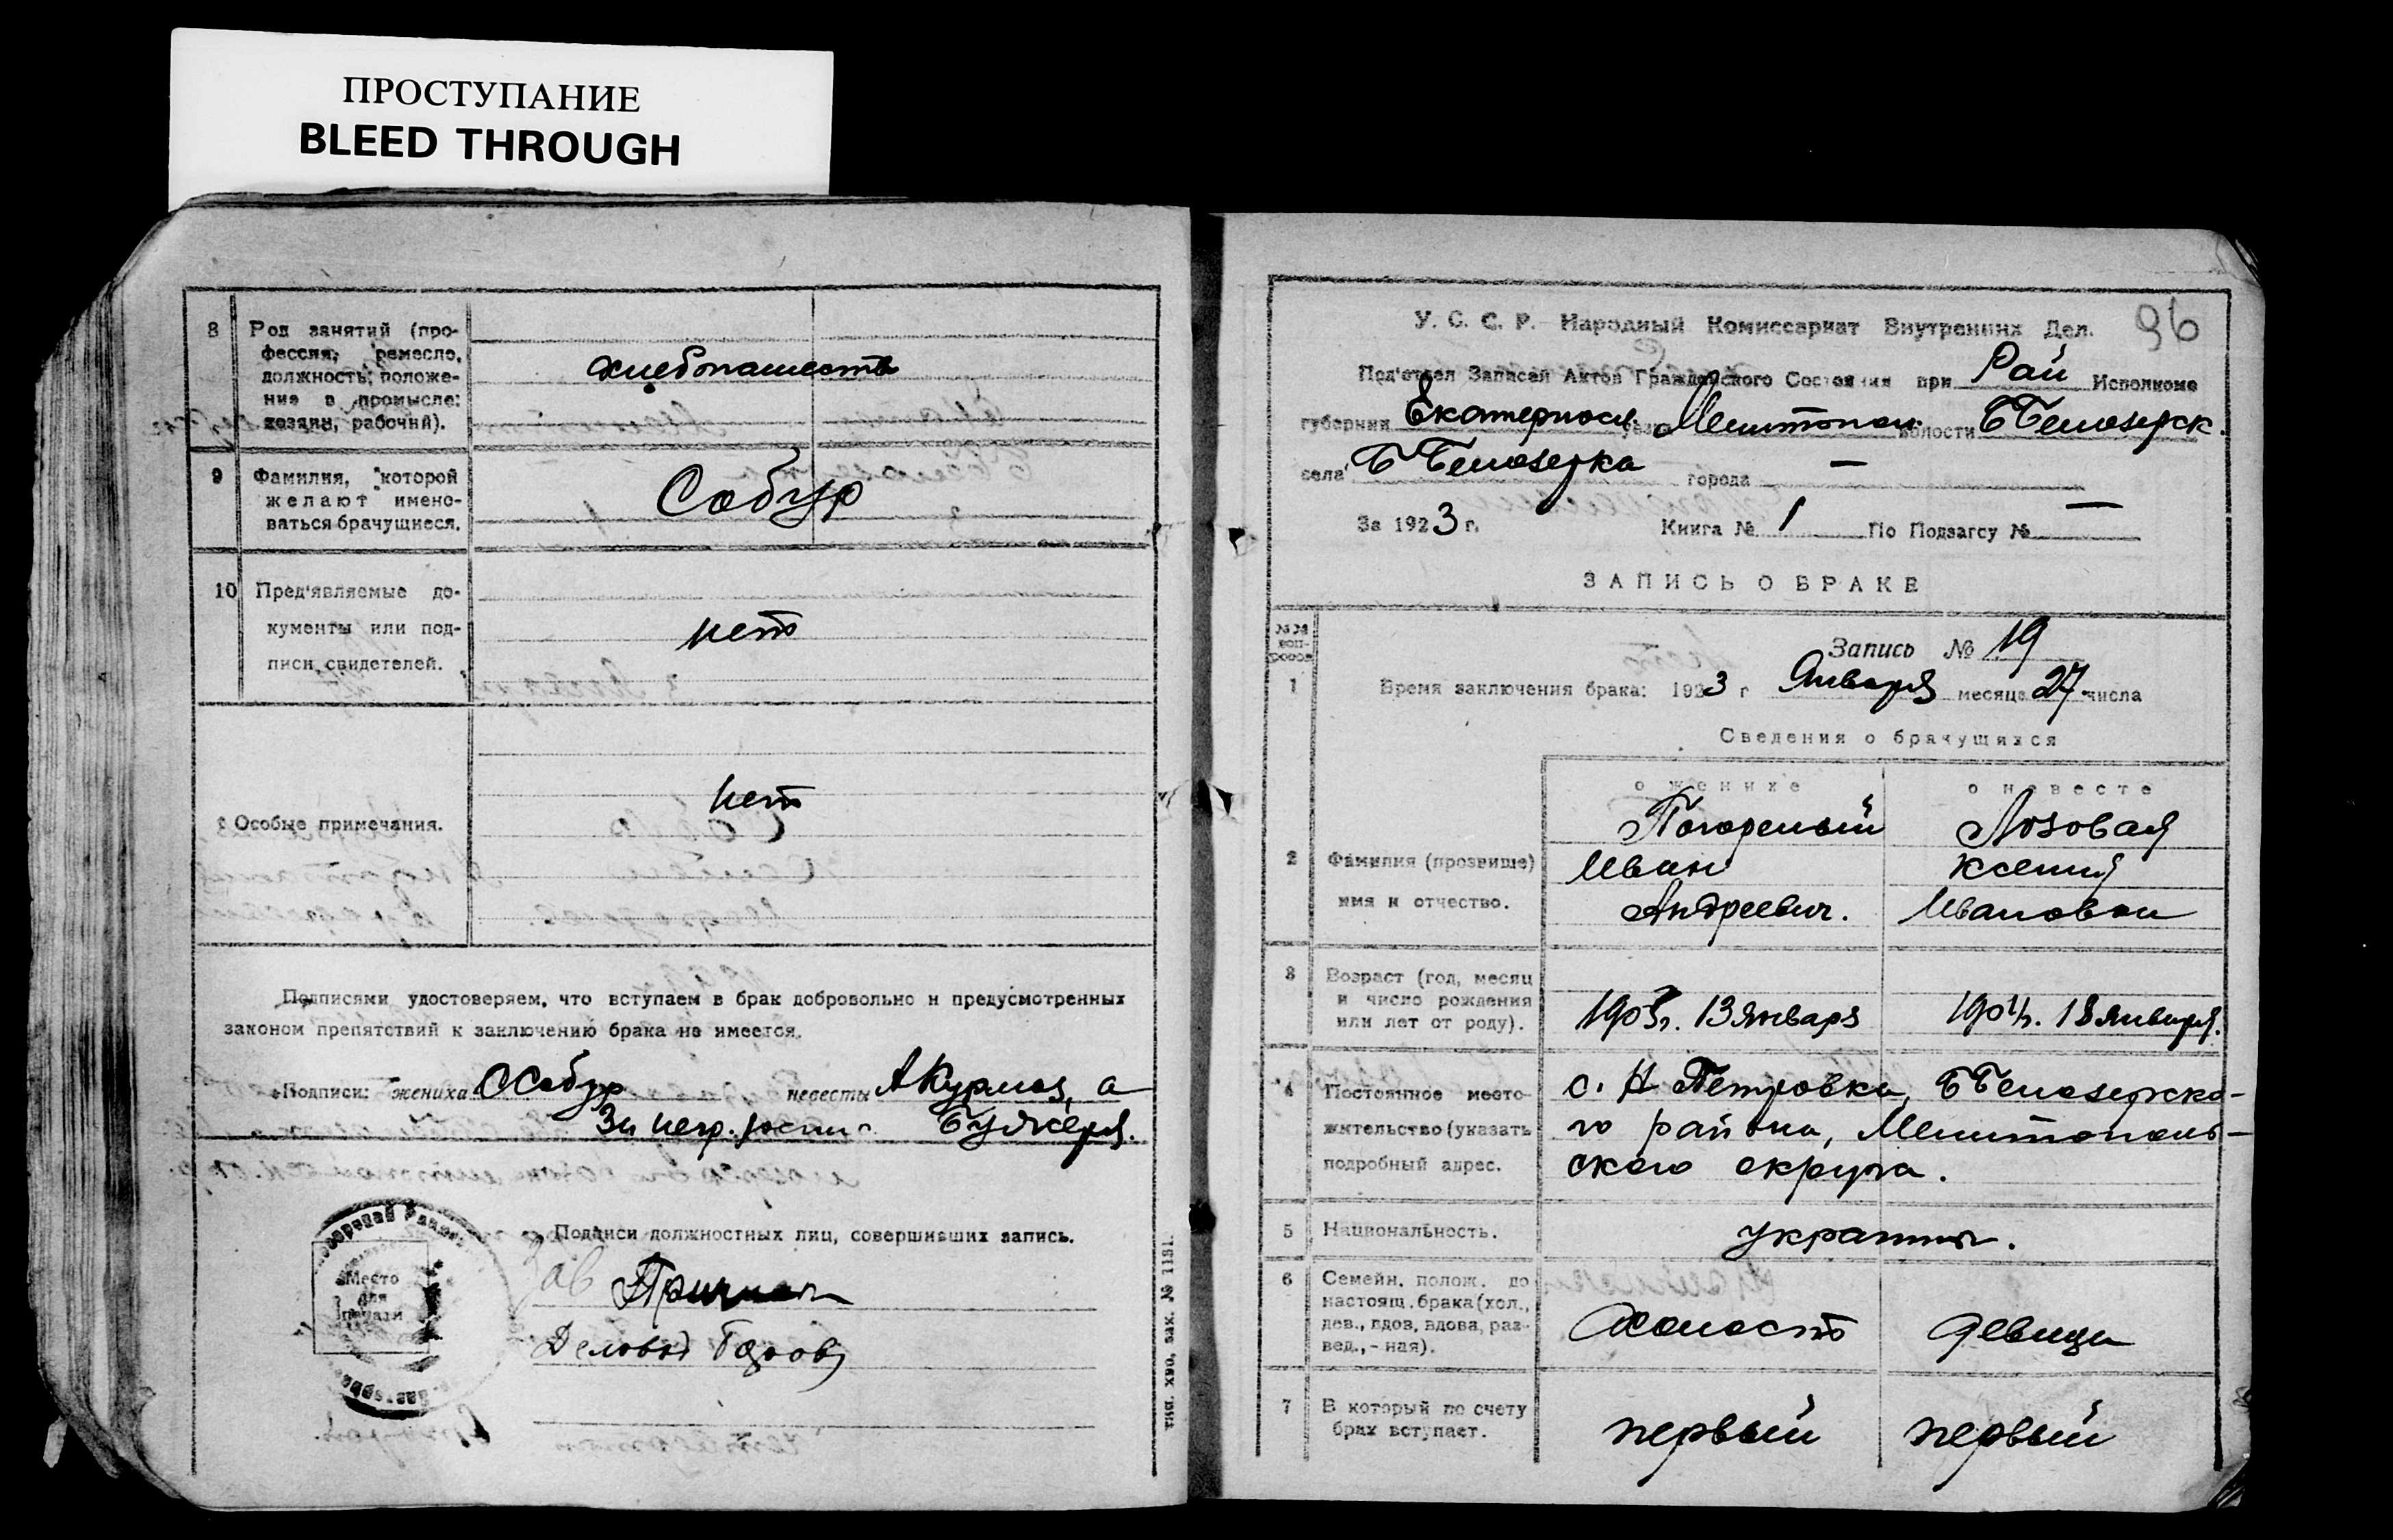 ПРОСТУПАНИЕ
BLEED THROUGH
8 Род занятий (про-
фессия, ремесло,
должность, положе-
ние в промысле:
хозяин, рабочий).
хлебопашеств
9 Фамилия, которой
желают имено-
ваться брачущиеся.
Собур
10 Пред'являемые до-
кументы или под-
писи свидетелей.
нет
Особые примечания.
нет
Подписями удостоверяем, что вступаем в брак добровольно и предусмотренных
законом препятствий к заключению брака не имеется.
Подписи: жениха ОСобур невесты
За негр.
Подписи должностных лиц, совершивших запись.
Зав
Место
для
печати
тип. хво, зак. № 1181.
96
У. С. С. Р. Народный Комиссариат Внутренних Дел.
Под'отдел Записей Актов Гражданского Состояния при Рай Исполкоме
губернии Екатериносл. уезда Мелитопол. волости Б Белозерск.
села Б Белозерка города —
За 1923 г. Книга № 1 По Подзагсу № —
ЗАПИСЬ О БРАКЕ
№№ воп-росов
Запись № 19
1 Время заключения брака: 1923 г Января месяца 27 числа
Сведения о брачущихся
о женихе о невесте
2 Фамилия (прозвище)
имя и отчество.
Погорелый Лозовая
Иван Ксения
Андреевич. Ивановна
3 Возраст (год, месяц
и число рождения
или лет от роду).
1903г. 13 января 1904г. 18 января.
4 Постоянное место-
жительство (указать
подробный адрес.
с. Н Петровка, Б Белозерско-
го района, Мелитополь-
ского округа.
5 Национальность.
украинцы.
6 Семейн. полож. до
настоящ. брака (хол.,
дев., вдов, вдова, раз-
вед., - ная).
Холост девица
7 В который по счету
брак вступает.
первый первый